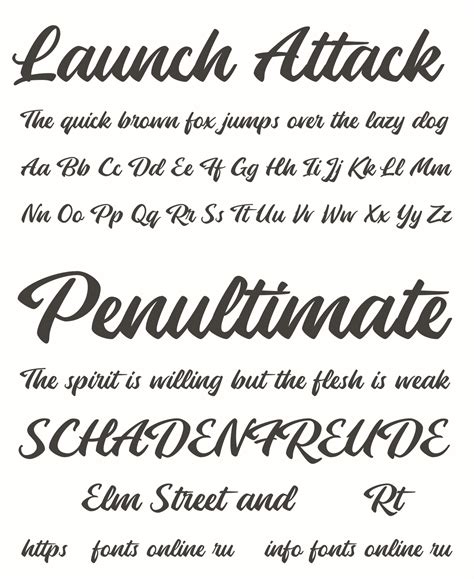 Launch Attack
The quick brown fox jumps over the lazy dog
Aa Bb Cc Dd Ee Ff Gg Hh Ii Jj Kk Ll Mm
Nn Oo Pp Qq Rr Ss Tt Uu Vv Ww Xx Yy Zz
Penultimate
The spirit is willing but the flesh is weak
SCHADENFREUDE
Elm Street and Rt
https fonts online ru info fonts online ru